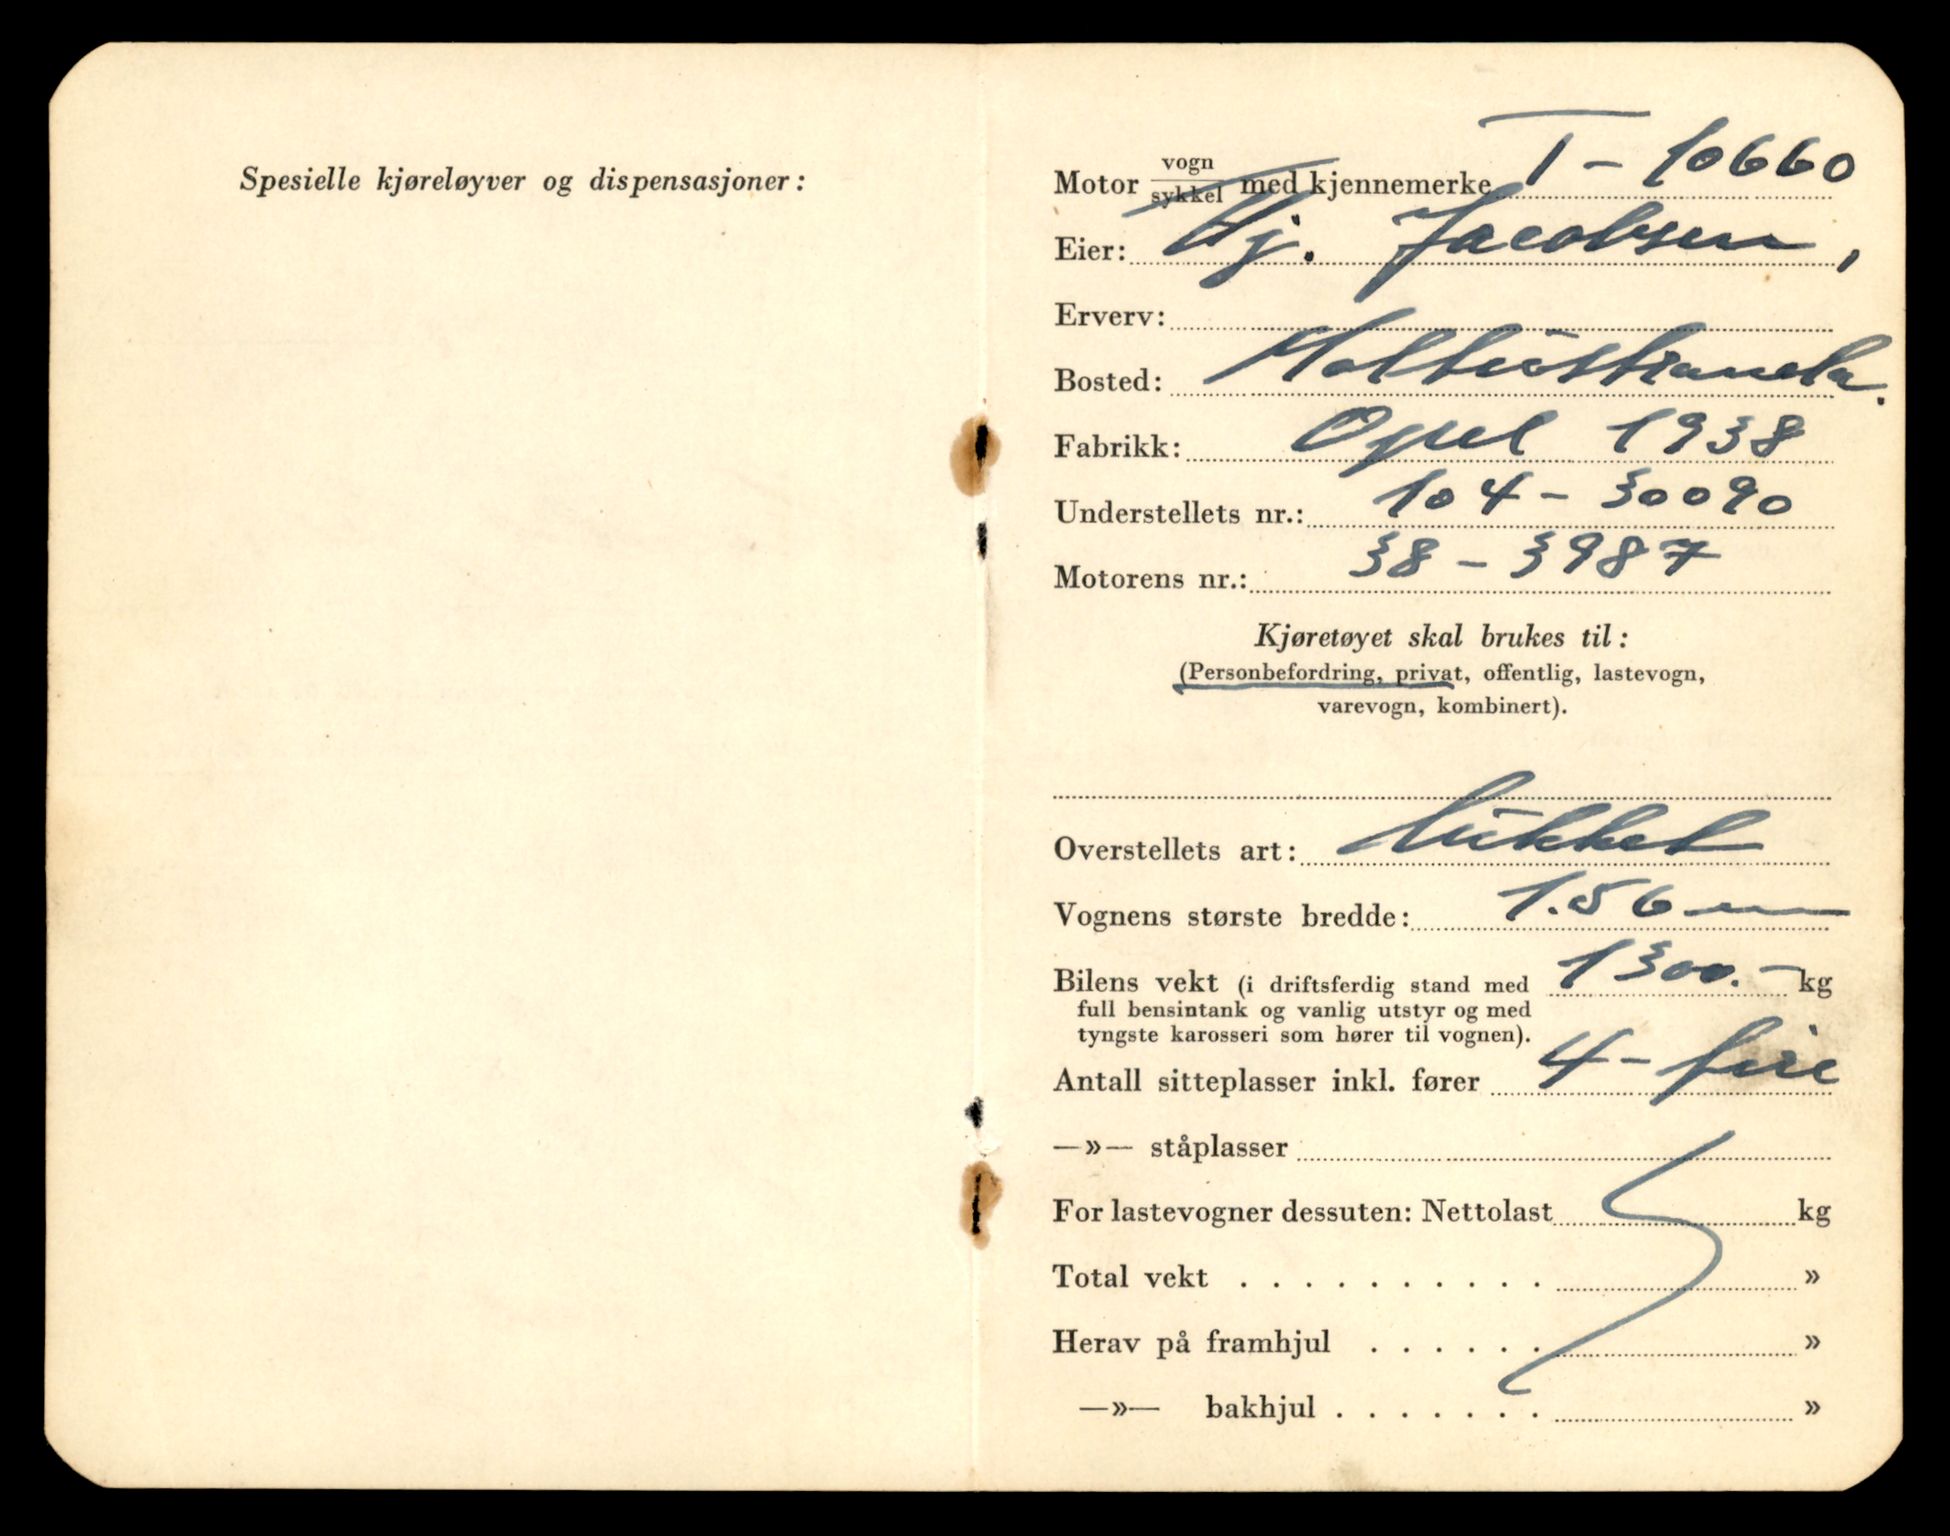 Spesielle kjøreløyver og dispensasjoner:
Motor vogn/sykkel med kjennemerke T - 10660
Eier: Hj. Jacobsen,
Erverv:
Bosted: Moltustranda.
Fabrikk: Opel 1938
Understellets nr.: 104 - 30090
Motorens nr.: 38 - 3987
Kjøretøyet skal brukes til:
(Personbefordring, privat, offentlig, lastevogn,
varevogn, kombinert).
Overstellets art: lukket
Vognens største bredde: 1.56 m
Bilens vekt (i driftsferdig stand med 1300.- kg
full bensintank og vanlig utstyr og med
tyngste karosseri som hører til vognen).
Antall sitteplasser inkl. fører 4 - fire
—»— ståplasser
For lastevogner dessuten: Nettolast kg
Total vekt . . . . . . . . . . »
Herav på framhjul . . . . . . »
—»— bakhjul . . . . . . . »